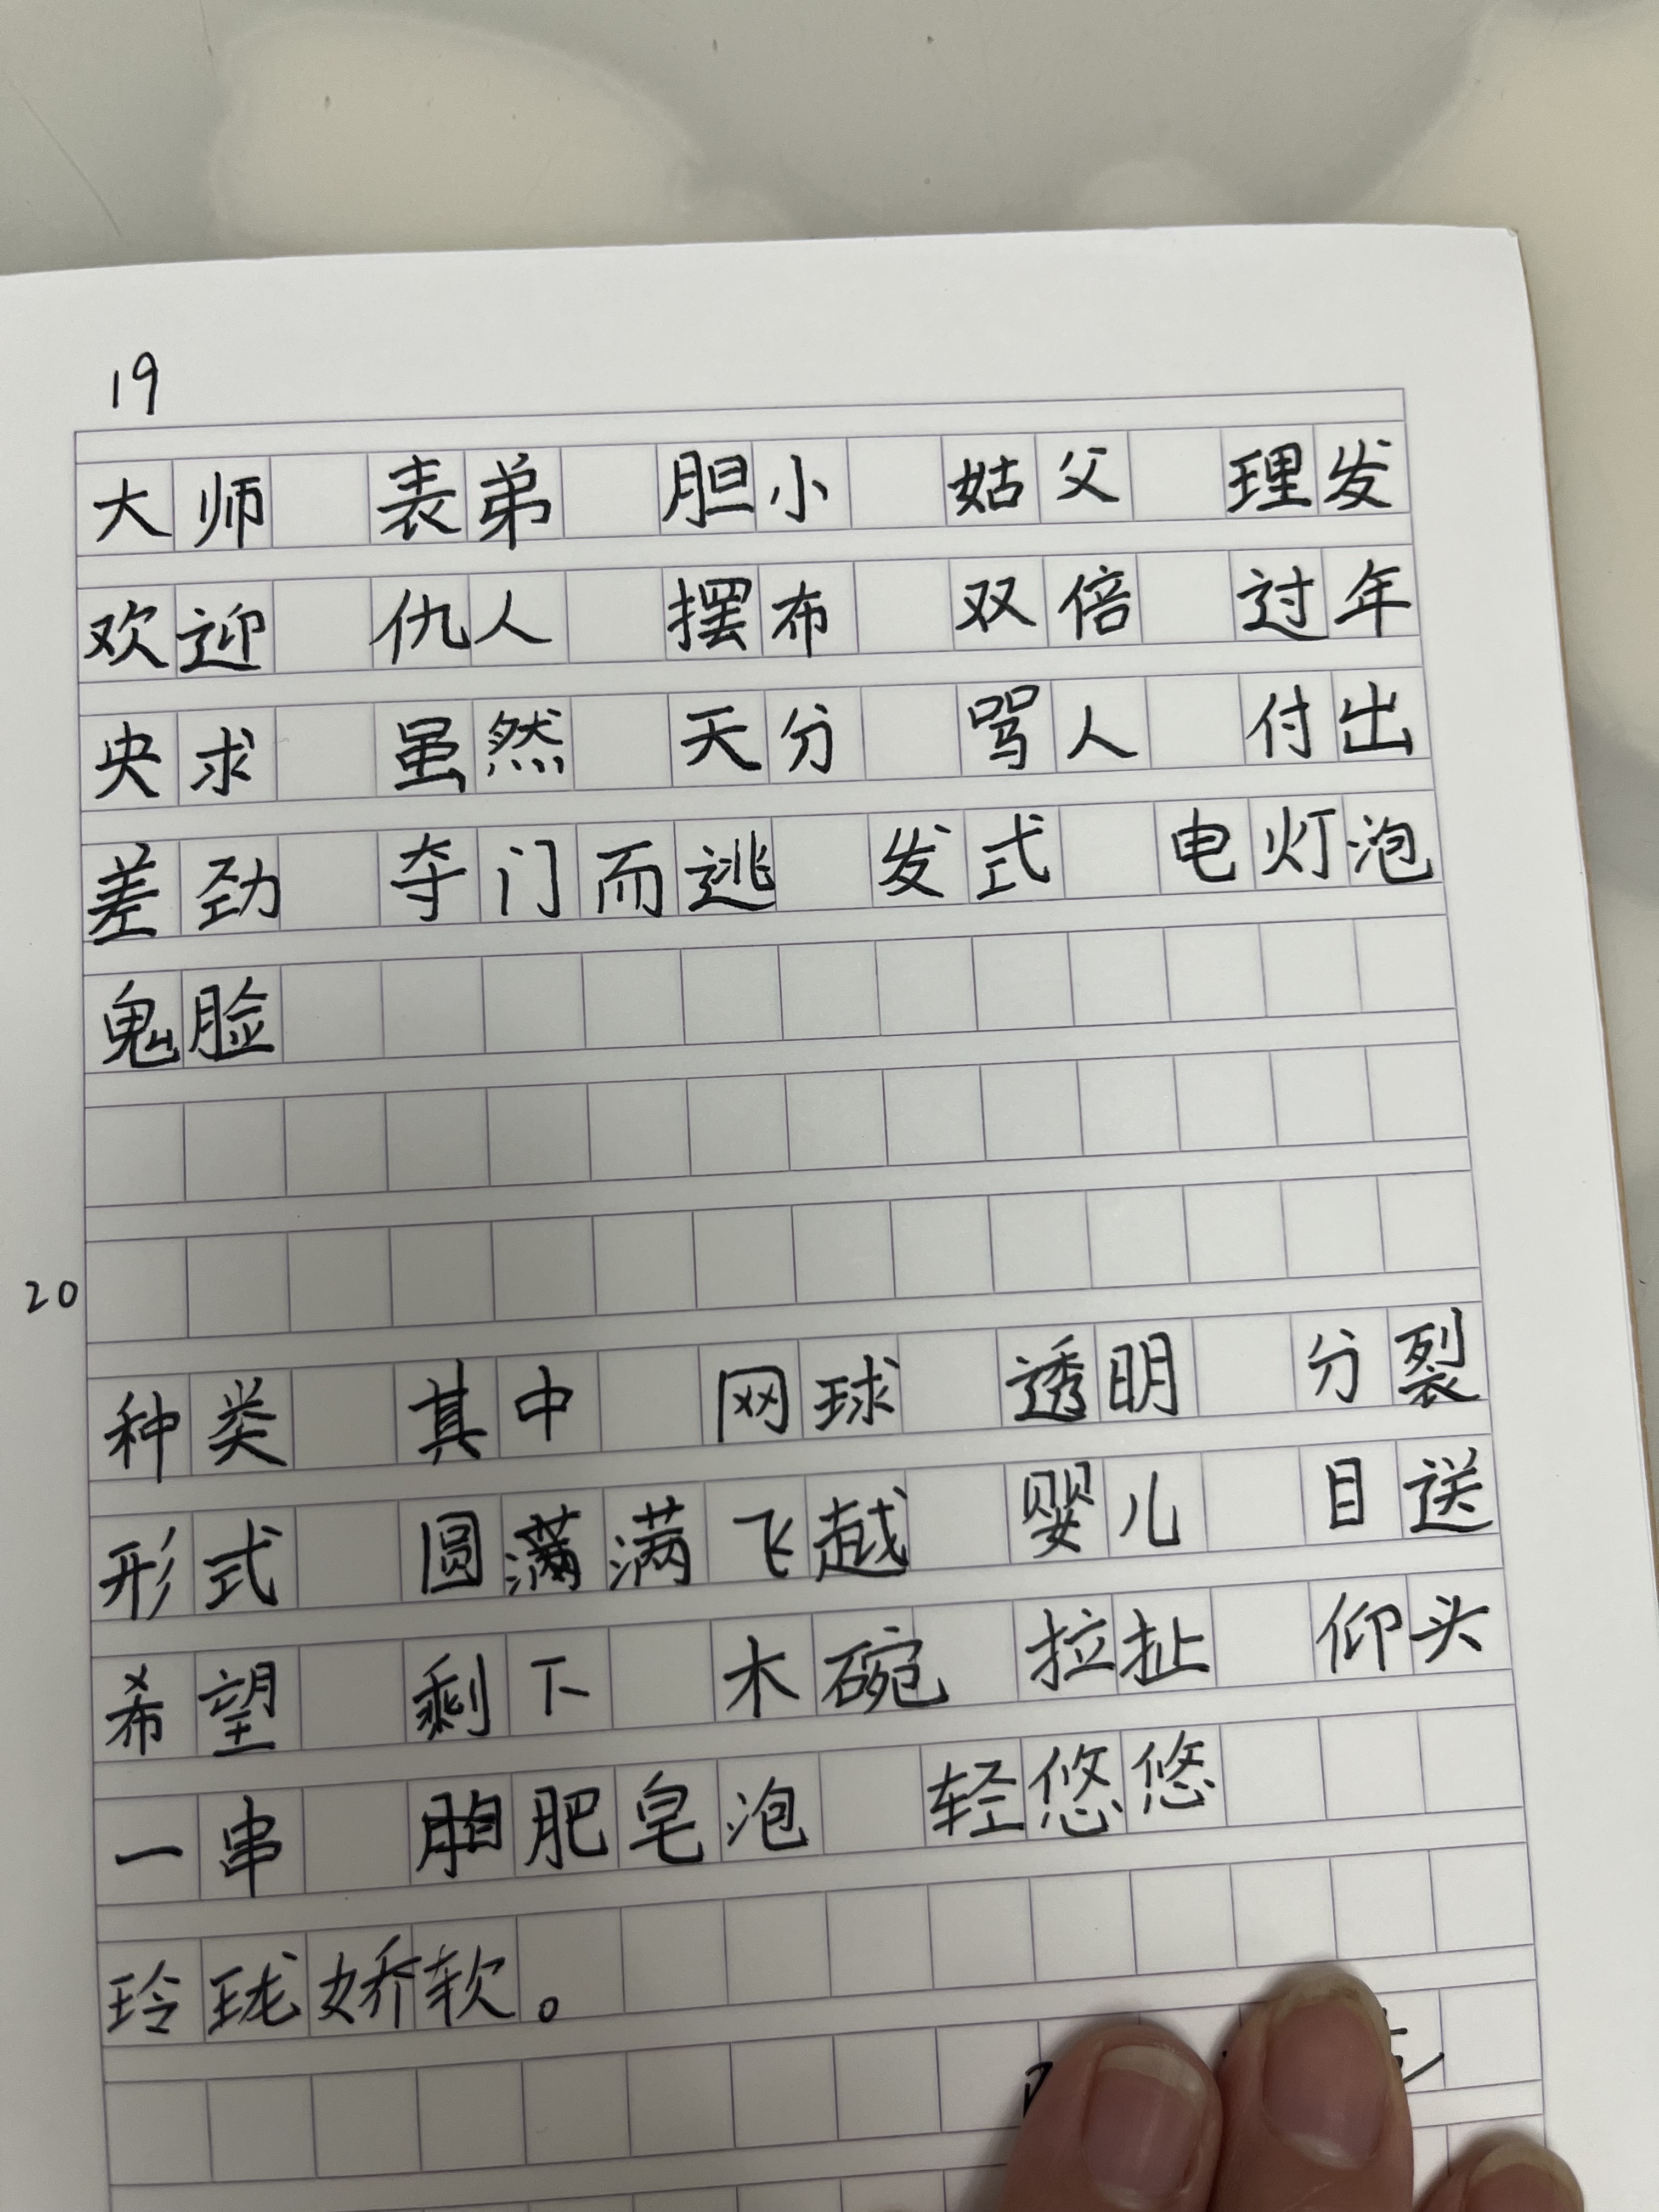 19
大师 表弟 胆小 姑父 理发
欢迎 仇人 摆布 双倍 过年
央求 虽然 天分 骂人 付出
差劲 夺门而逃 发式 电灯泡
鬼脸
20
种类 其中 网球 透明 分裂
形式 圆满满 飞越 婴儿 目送
希望 剩下 木碗 拉扯 仰头
一串 肥皂泡 轻悠悠
玲珑娇软。